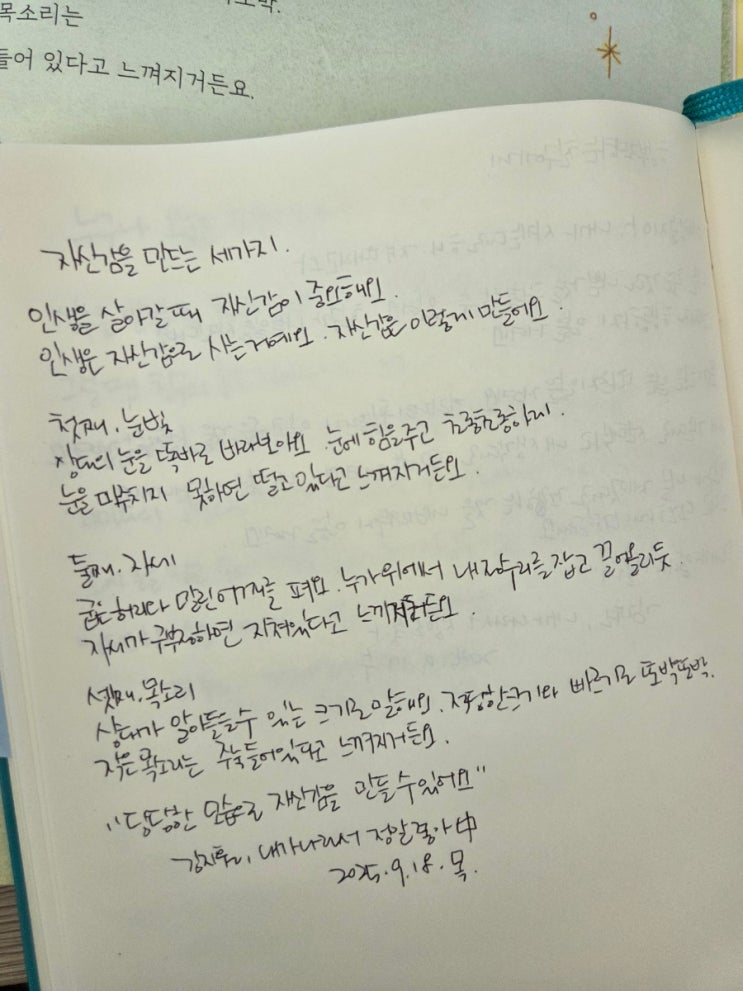 목소리는
들어 있다고 느껴지거든요.
자신감을 만드는 세가지.
인생을 살아갈 때 자신감이 중요해요.
인생은 자신감으로 사는거예요. 자신감은 이렇게 만들어요.
첫째. 눈빛
상대의 눈을 똑바로 바라보아요. 눈에 힘을 주고 초롱초롱하게.
눈을 마주치지 못하면 떨고 있다고 느껴지거든요.
둘째. 자세
굽은 허리와 말린 어깨를 펴요. 누가 위에서 내 정수리를 잡고 끌어올리듯.
자세가 구부정하면 지쳐있다고 느껴지거든요.
셋째. 목소리
상대가 알아들을 수 있는 크기로 말해요. 적당한 크기와 빠르기로 또박또박.
작은 목소리는 주눅들어있다고 느껴지거든요.
"당당한 모습으로 자신감을 만들 수 있어요"
김지훤, 내가 나라서 정말 좋아 中
2025. 9. 18. 목.